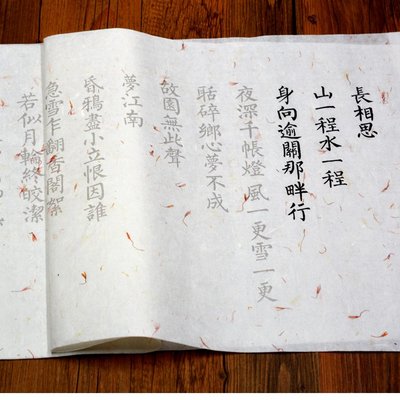 長相思
山一程水一程
身向逾關那畔行
夜深千帳燈 風一更雪一更
聒碎鄉心夢不成
故園無此聲
夢江南
昏鴉盡小立恨因誰
急雪乍翻香閣絮
若似月輪終皎潔